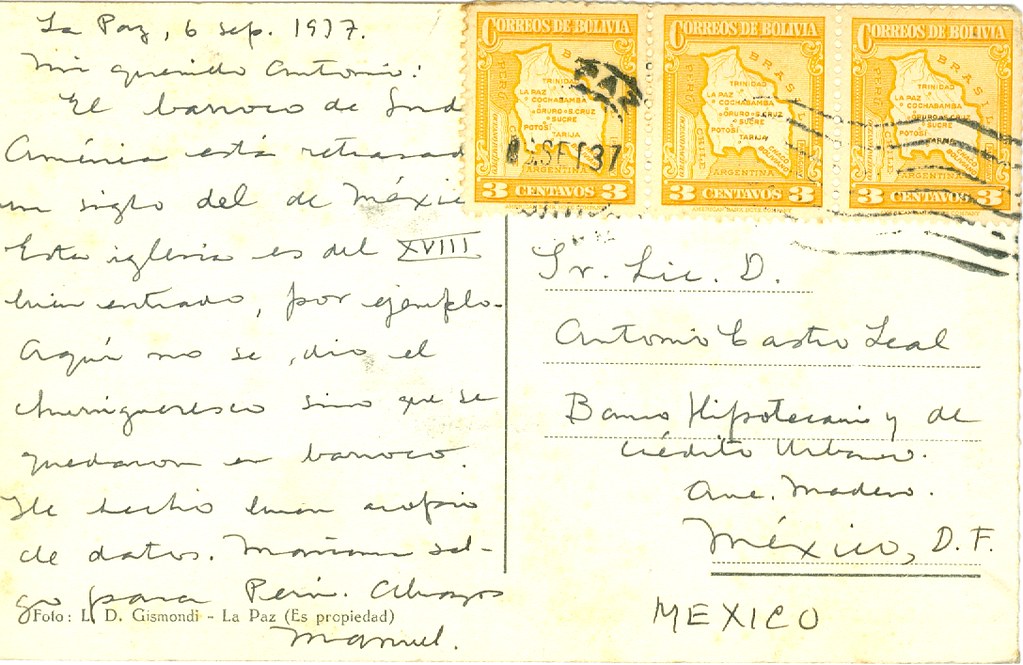 La Paz, 6 sep. 1937.
Mi querido Antonio:
El barroco de Sud
América está retrasad
un siglo del de Méxic
Esta iglesia es del XVIII
bien entrado, por ejemplo.
Aquí no se dio el
churrigueresco sino que se
quedaron en barroco.
He hecho buen acopio
de datos. Mañana sal-
go para Perú. Abrazos
Manuel.
Foto: L. D. Gismondi - La Paz (Es propiedad)
CORREOS DE BOLIVIA
BRASIL
PERÚ
TRINIDAD
LA PAZ
COCHABAMBA
ORURO S. CRUZ
SUCRE
POTOSÍ
TARIJA
CHILE
ARGENTINA
3 CENTAVOS 3
CORREOS DE BOLIVIA
BRASIL
PERÚ
TRINIDAD
LA PAZ
COCHABAMBA
ORURO S. CRUZ
SUCRE
POTOSÍ
TARIJA
CHILE
CHACO BOLIVIANO
ARGENTINA
3 CENTAVOS 3
CORREOS DE BOLIVIA
BRASIL
PERÚ
TRINIDAD
LA PAZ
COCHABAMBA
ORURO S. CRUZ
SUCRE
POTOSÍ
TARIJA
CHILE
CHACO BOLIVIANO
ARGENTINA
3 CENTAVOS 3
PAZ
SET 37
Sr. Lic. D.
Antonio Castro Leal
Banco Hipotecario y de
Crédito Urbano.
Ave. Madero.
México, D. F.
MEXICO